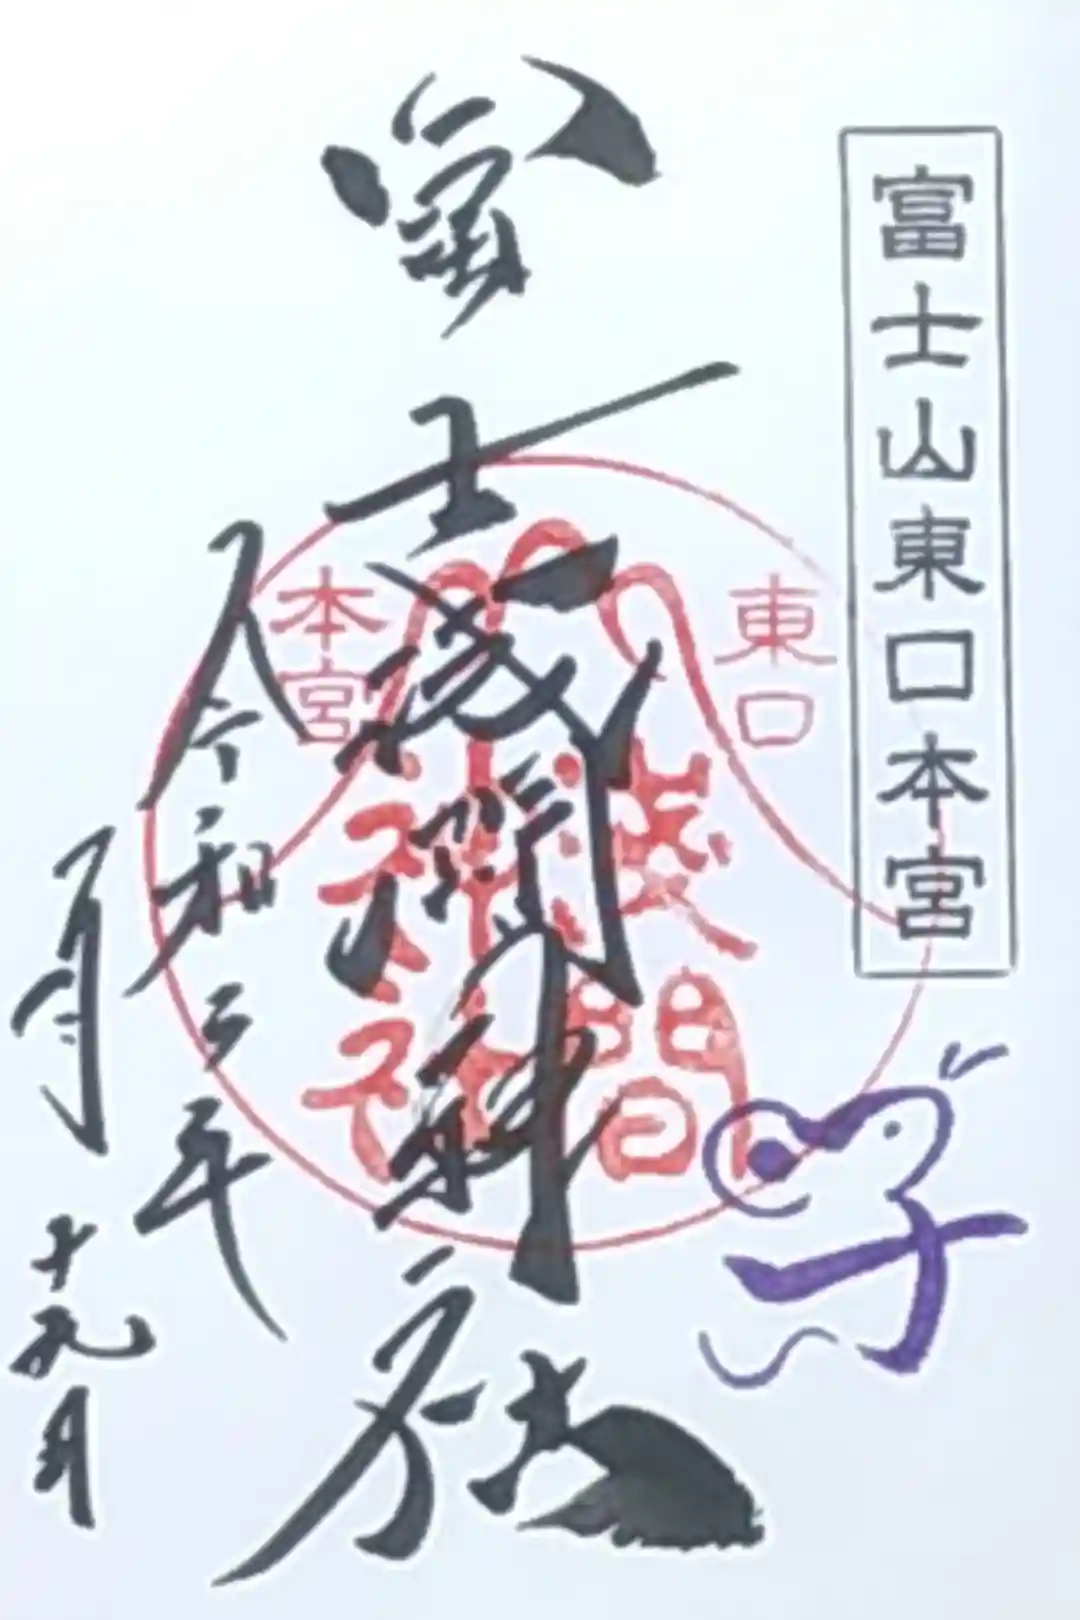 富士山東口本宮
東口
本宮
浅間
神社
子
富士浅間神社
令和二年
月
十九日